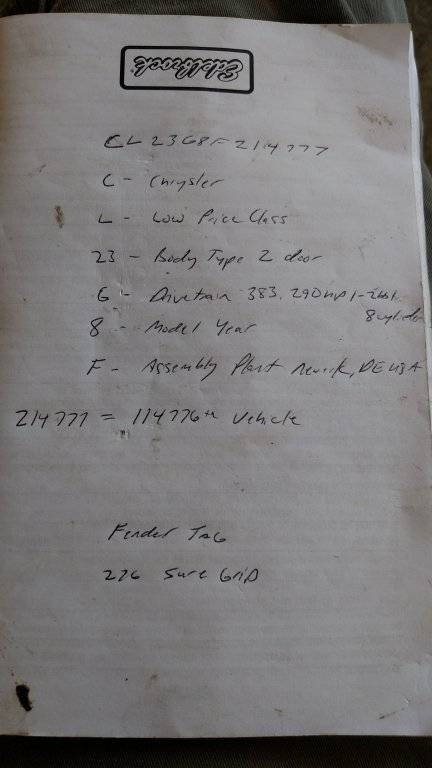 Edelbrock
CL23G8F214777
C - Chrysler
L - Low Price Class
23 - Body Type 2 door
G - Drivetrain 383, 290hp 1-2bbl
8 cylinder
8 - Model Year
F - Assembly Plant Newark, DE USA
214777 = 114776th Vehicle
Fender Tag
276 Sure Grip